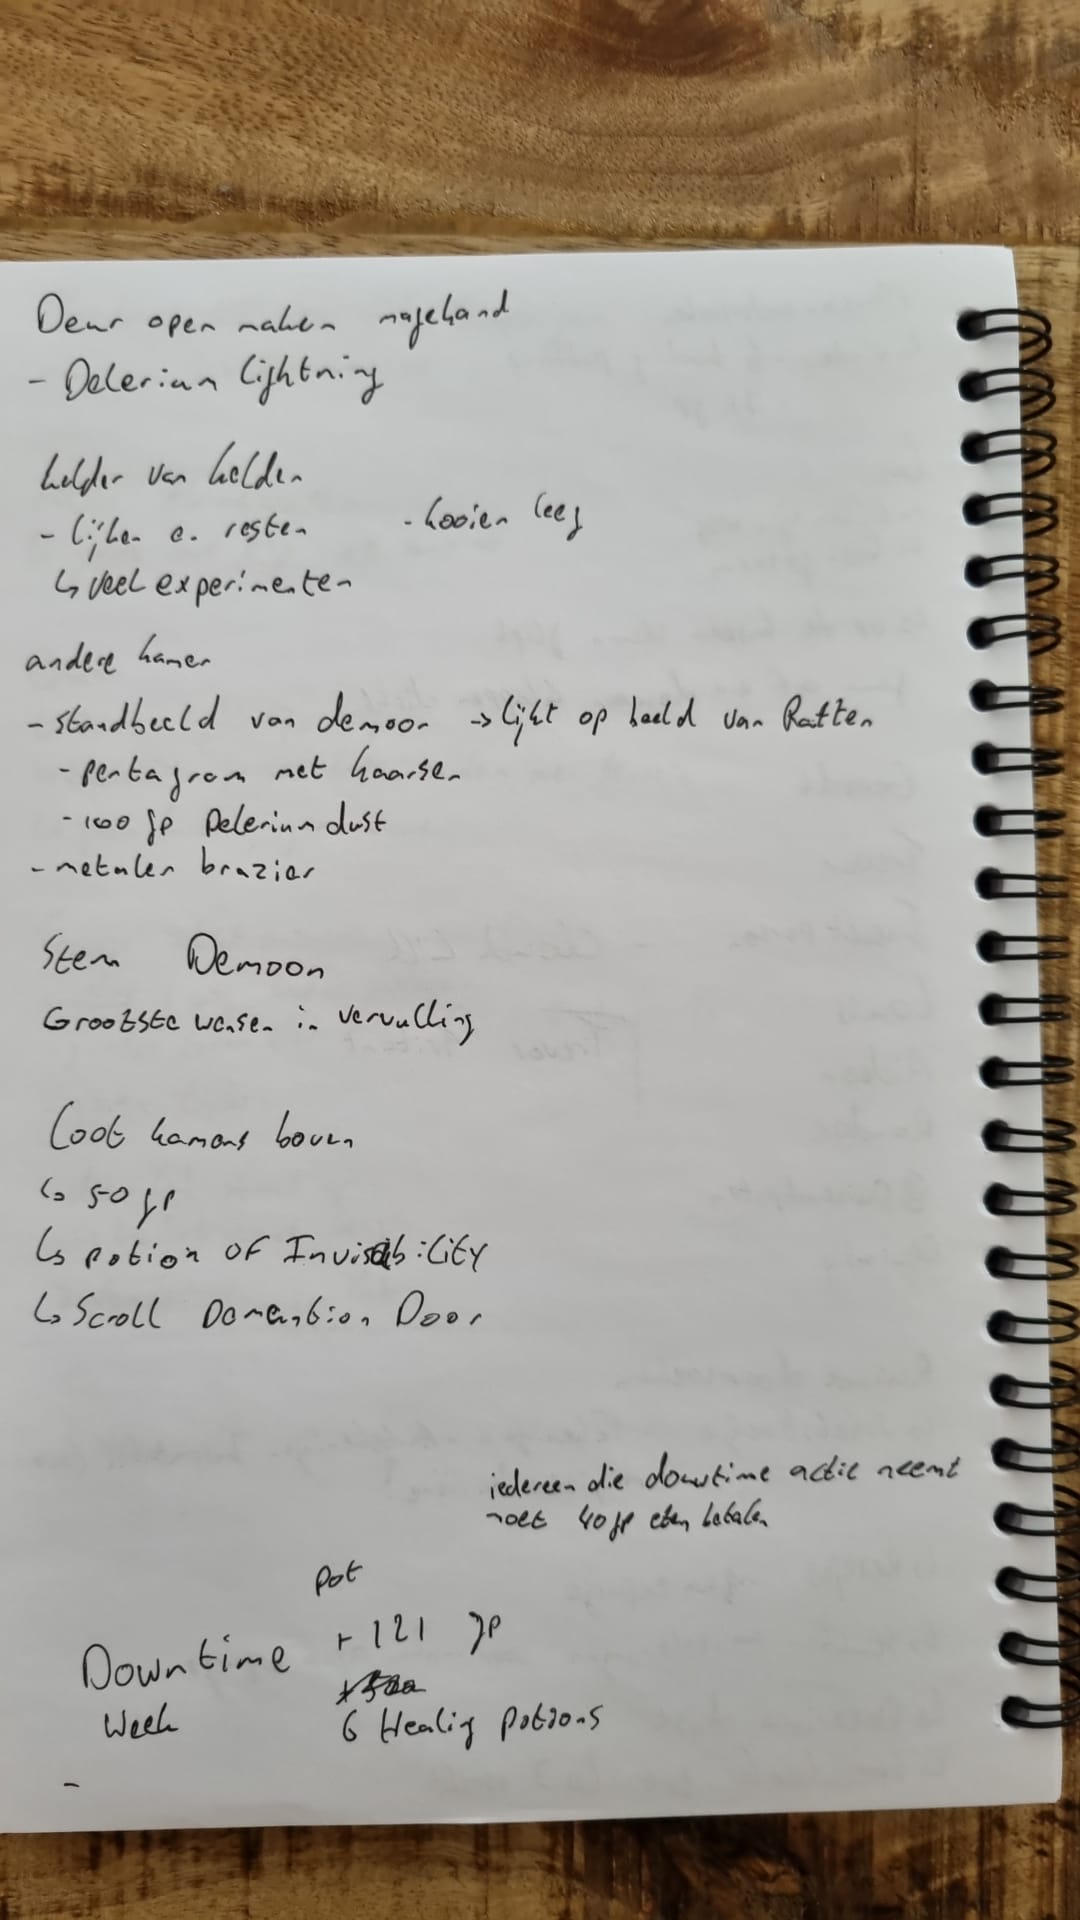 Deur open maken magehand
- Delerium lightning
kelder van helden
- lijken e. resten - kooien leeg
↳ veel experimenten
andere kamer
- standbeeld van demoon → lijkt op beeld van Ratten
- pentagram met kaarsen
- 100 gp Delerium dust
- metalen brazier
Stem Demoon
Grootste wensen in vervulling
Loot kamers boven
↳ 50 gp
↳ potion OF Invisibility
↳ Scroll Domention Door
iedereen die downtime actie neemt
moet 40 gp eten betalen
pot
Downtime + 121 gp
Week 6 Healig Potions
-